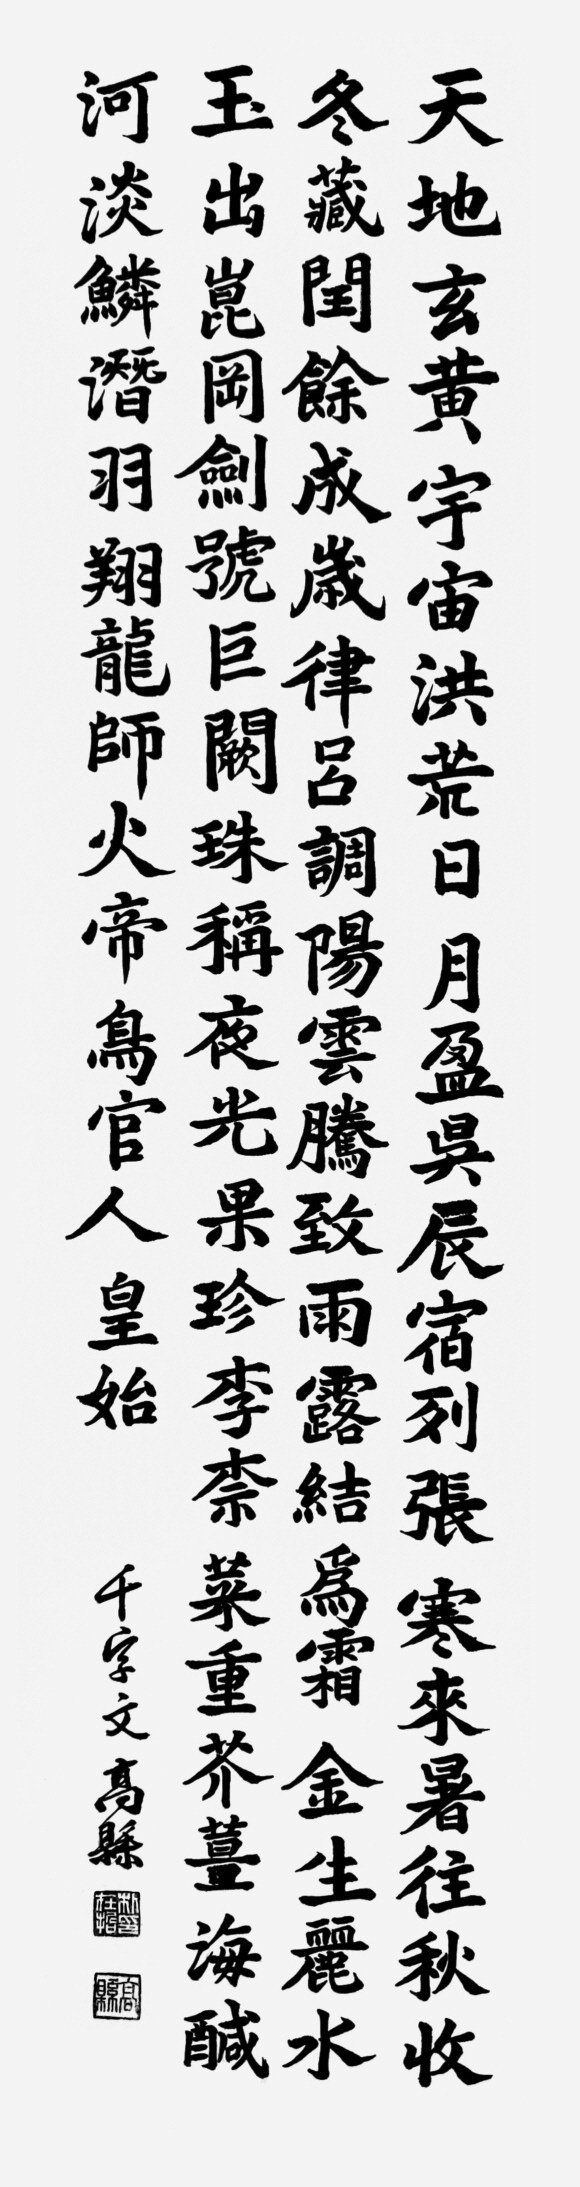 天地玄黃宇宙洪荒日月盈昃辰宿列張寒來暑往秋收
冬藏閏餘成歲律呂調陽雲騰致雨露結爲霜金生麗水
玉出崑岡劍號巨闕珠稱夜光果珍李柰菜重芥薑海醎
河淡鱗潛羽翔龍師火帝鳥官人皇始
千字文高縣